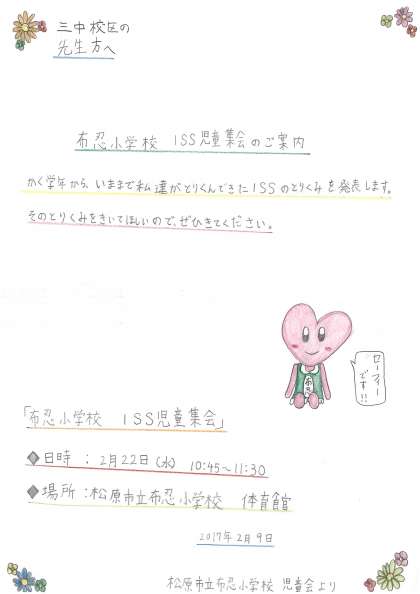 三中校区の
先生方へ
布忍小学校 ISS児童集会のご案内
かく学年から、いままで私達がとりくんできたISSのとりくみを発表します。
そのとりくみをきいてほしいので、ぜひきてください。
ローフィー
です!!
「布忍小学校 ISS児童集会」
◆日時 : 2月22日(水) 10:45~11:30
◆場所 : 松原市立布忍小学校 体育館
2017年2月9日
松原市立布忍小学校 児童会より